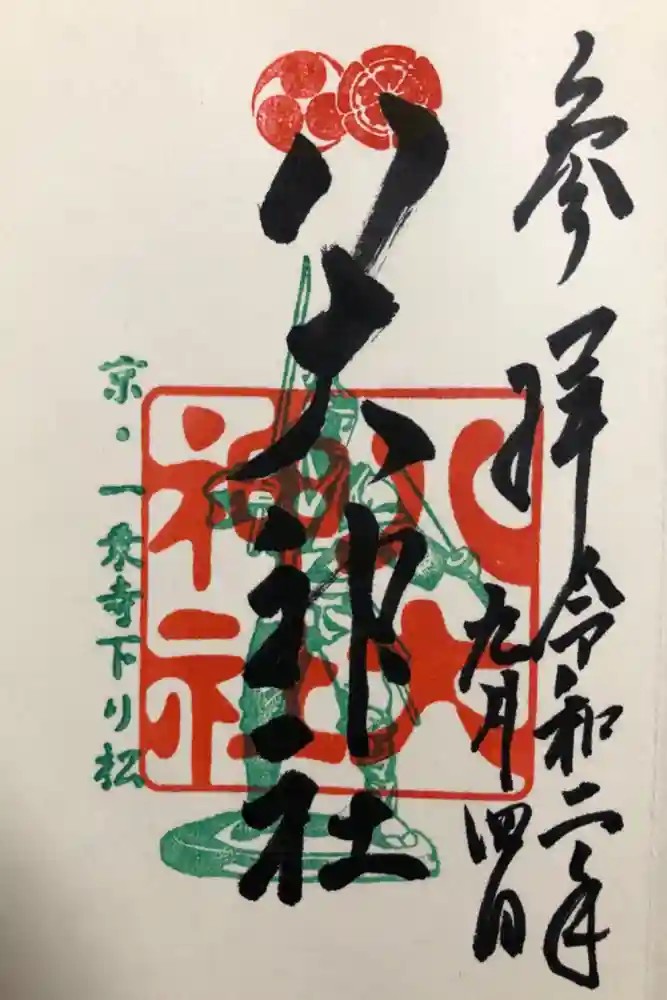 参拝
令和二年
九月四日
八大神社
八大神社
京・一乗寺下り松